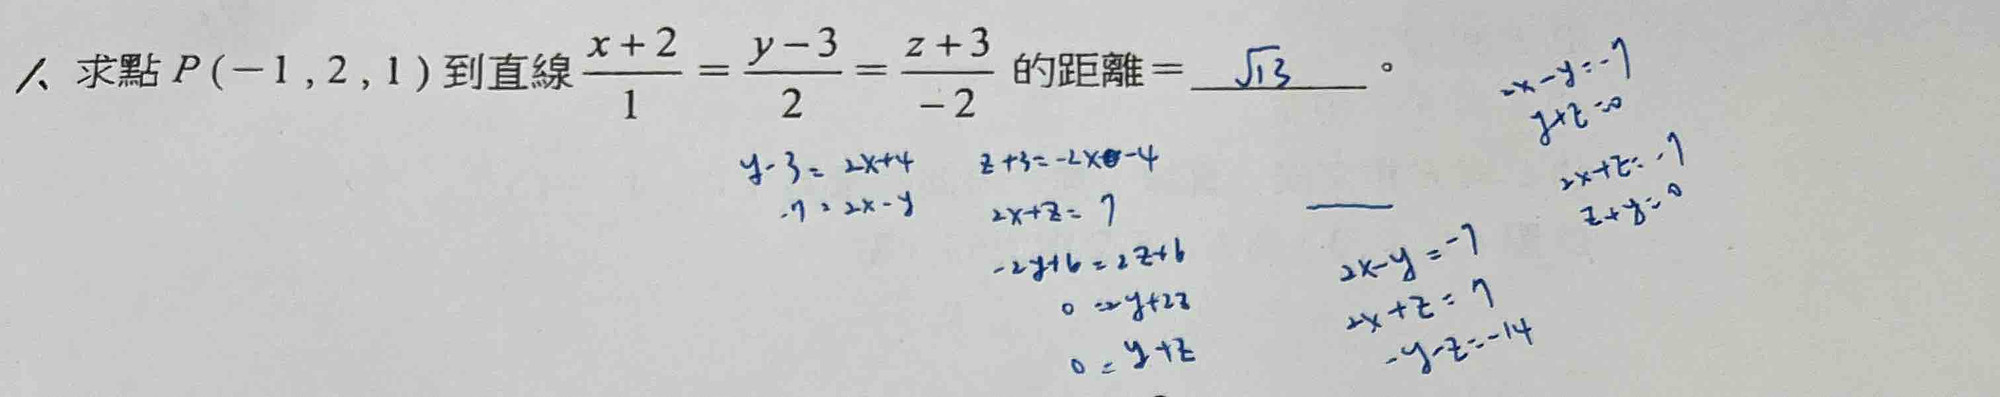 1、求點 P(−1,2,1)到直線 (x+2)/1 = (y−3)/2 = (z+3)/−2 的距離= √13 。
y-3=2x+4
-7=2x-y
z+3=-2x-4
2x+z=7
-2y+6=2z+6
0=2y+2z
0=y+z
2x-y=-7
2x+z=7
-y-z=-14
2x-y=-7
y+z=0
2x+z=-7
z+y=0